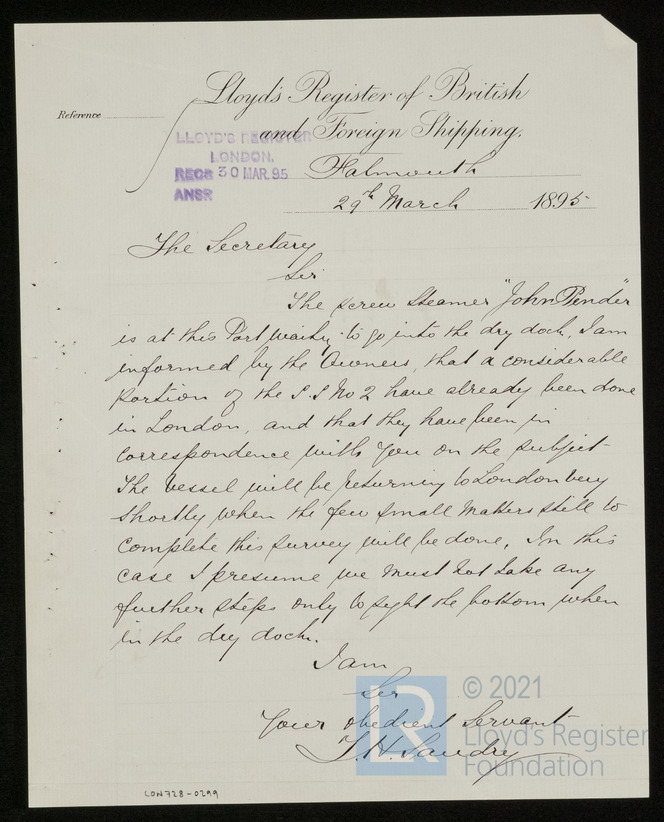 Lloyd's Register of British
and Foreign Shipping.
Reference
LLOYD'S REGISTER
LONDON.
RECD 30 MAR.95
ANSR
Falmouth
29th March 1895
The Secretary
Sir
The screw steamer "John Pender"
is at this Port waiting to go into the dry dock. I am
informed by the Owners, that a considerable
portion of the S.S No 2 have already been done
in London, and that they have been in
correspondence with you on the subject
The vessel will be returning to London very
shortly when the few small matters still to
complete this survey will be done. In this
case I presume we must not take any
further steps only to sight the bottom when
in the dry dock.
I am
Sir
Your obedient Servant
LR
© 2021
Lloyd's Register
Foundation
LON728-0299